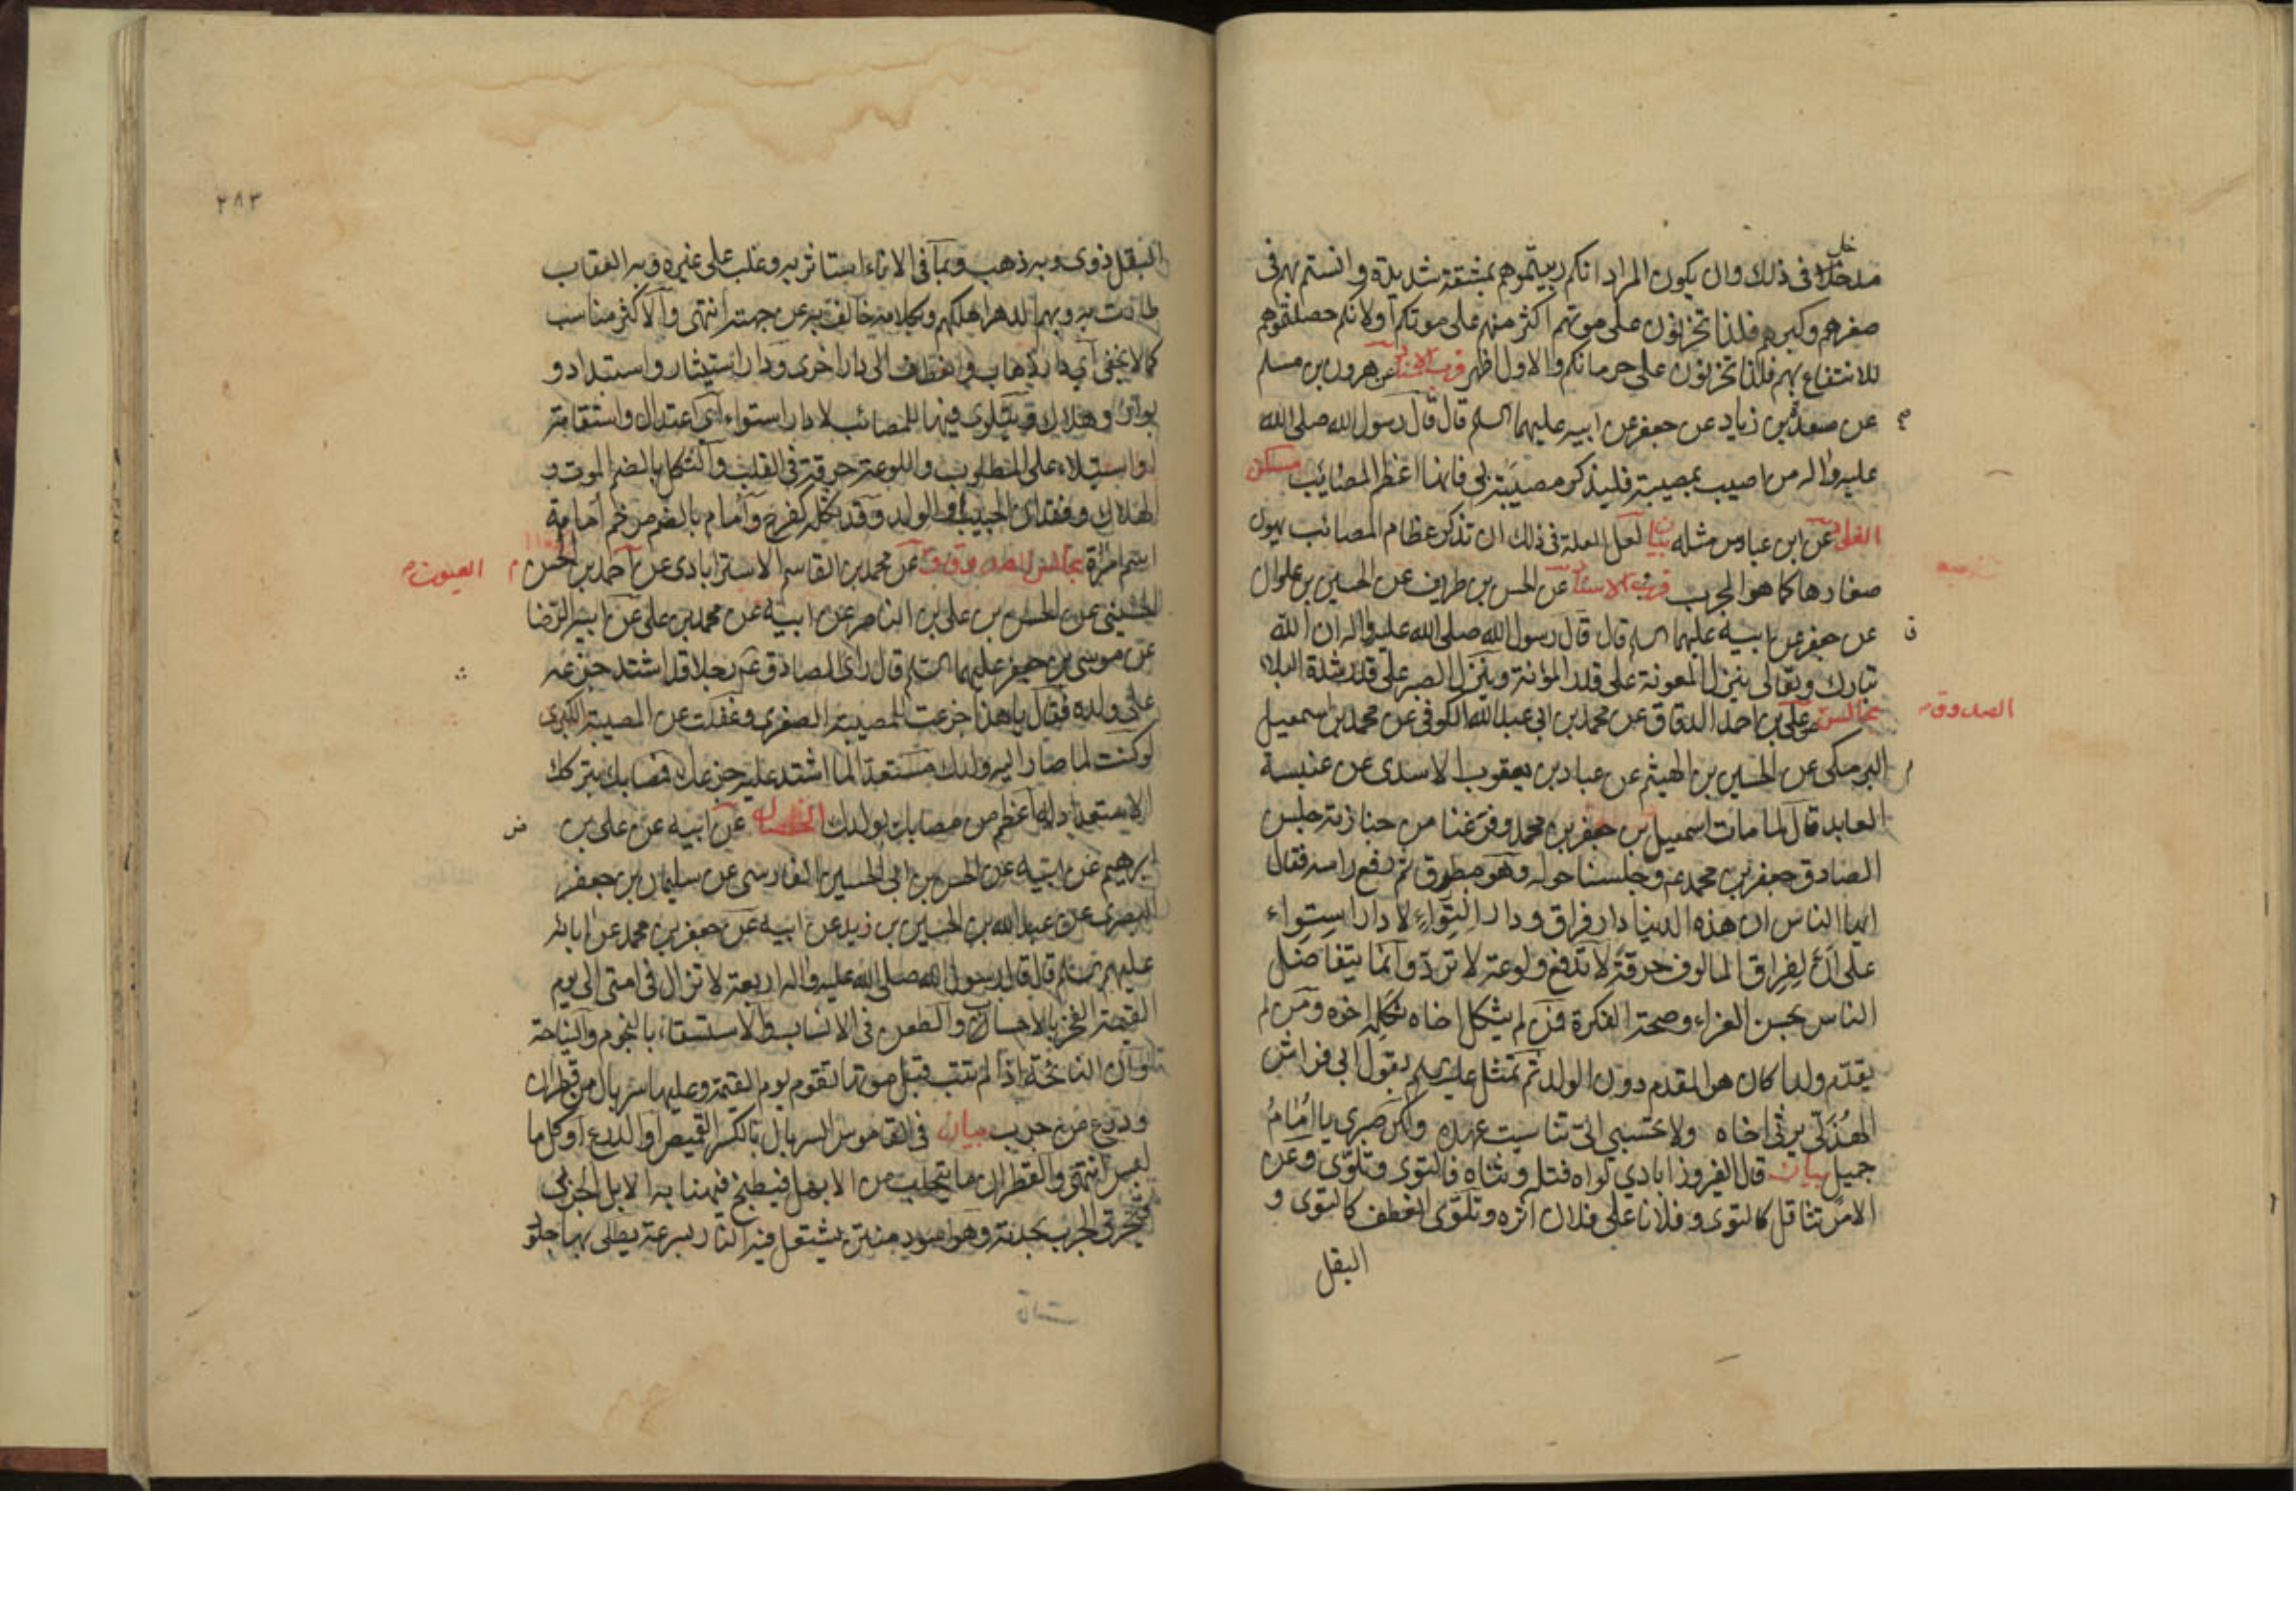 خل
مدخلا في ذلك وان يكون المراد انكم ربيتموهم بمشقة شديدة وانستم بهم في
صغرهم وكبرهم فلذا تحزنون على موتهم اكثر منهم على موتكم اولانكم حصلتموهم
للانتفاع بهم فلذا تحزنون على حرمانكم والاول اظهر قرب الاسناد عن هرون بن مسلم
عن مسعدة بن زياد عن جعفر عن ابيه عليهما السلم قال قال رسول الله صلى الله
عليه واله من اصيب بمصيبة فليذكر مصيبته بي فانها اعظم المصائب مسكن
الفواد عن ابن عباس مثله بيان لعل العلة في ذلك ان تذكر عظام المصائب يهون
صغارها كما هو المجرب قرب الاسناد عن الحسن بن طريف عن الحسين بن علوان
عن جعفر عن ابيه عليهما السلم قال قال رسول الله صلى الله عليه واله ان الله
تبارك وتعالى ينزل المعونة على قدر المؤنة وينزل الصبر على قدر شدة البلاء
الصدوق
مجالس عن علي بن احمد الدقاق عن محمد بن ابي عبد الله الكوفي عن محمد بن اسمعيل
البرمكي عن الحسين بن الهيثم عن عباد بن يعقوب الاسدي عن عنبسة
العابد قال لما مات اسمعيل بن جعفر بن محمد وفرغنا من جنازته جلس
الصادق جعفر بن محمد ع وجلسنا حوله وهو مطرق ثم رفع راسه فقال
ايها الناس ان هذه الدنيا دار فراق ودار التواء لا دار استواء
على ان لفراق المالوف حرقة لا تدفع ولوعة لا ترد وانما يتفاضل
الناس بحسن العزاء وصحة الفكرة فمن لم يثكل اخاه ثكله اخوه ومن لم
يقدم ولدا كان هو المقدم دون الولد ثم تمثل عليه السلم بقول ابي خراش
الهذلي يرثي اخاه ولا تحسبي اني تناسيت عهده ولكن صبري يا امام
جميل بيان قال الفيروزابادي لواه فتله وثناه فالتوى وتلوى وعن
الامر تثاقل كالتوى وفلانا على فلان اثره وتلوى انعطف كالتوى و
البقل
٢٨٣
البقل ذوى وبه ذهب وبما في الاناء استاثر به وغلب على غيره وبه العقاب
طارت به وبهم الدهر اهلكهم وبكلامه خالف به عن جهته انتهى والاكثر مناسب
كما لا يخفى اي دار ذهاب وانعطاف الى دار اخرى ودار استيثار واستبداد و
بوار وهلاك وتلوى فيها للمصائب لا دار استواء اي اعتدال واستقامة
او استيلاء على المطلوب واللوعة حرقة في القلب والثكل بالضم الموت و
الهلاك وفقدان الحبيب او الولد وقد ثكله كفرح وامام بالضم مرخم امامة
اسم امراة مجالس الصدوق عن محمد بن القاسم الاسترابادي عن احمد بن الحسن
العيون
الحسيني عن الحسن بن علي بن الناصر عن ابيه عن محمد بن علي عن ابيه الرضا
عن موسى بن جعفر عليهما السلم قال راى الصادق ع رجلا قد اشتد جزعه
على ولده فقال يا هذا جزعت للمصيبة الصغرى وغفلت عن المصيبة الكبرى
لو كنت لما صار اليه ولدك مستعدا لما اشتد عليه جزعك فمصابك بتركك
الاستعداد له اعظم من مصابك بولدك الخصال عن ابيه عن علي بن
ابرهيم عن ابيه عن الحسن بن ابي الحسين الفارسي عن سليمان بن جعفر
البصري عن عبد الله بن الحسين بن زيد عن ابيه عن جعفر بن محمد عن ابائه
عليهم السلم قال قال رسول الله صلى الله عليه واله اربعة لا تزال في امتي الى يوم
القيمة الفخر بالاحساب والطعن في الانساب والاستسقاء بالنجوم والنياحة
وان النائحة اذا لم تتب قبل موتها تقوم يوم القيمة وعليها سربال من قطران
ودرع من جرب بيان في القاموس السربال بالكسر القميص او الدرع او كل ما
لبس انتهى والقطران ما يتحلب من الابهل فيطبخ فيهنا به الابل الجربي
فيحرق الجرب بحدته وهو اسود منتن يشتعل فيه النار بسرعة يطلى بها جلو